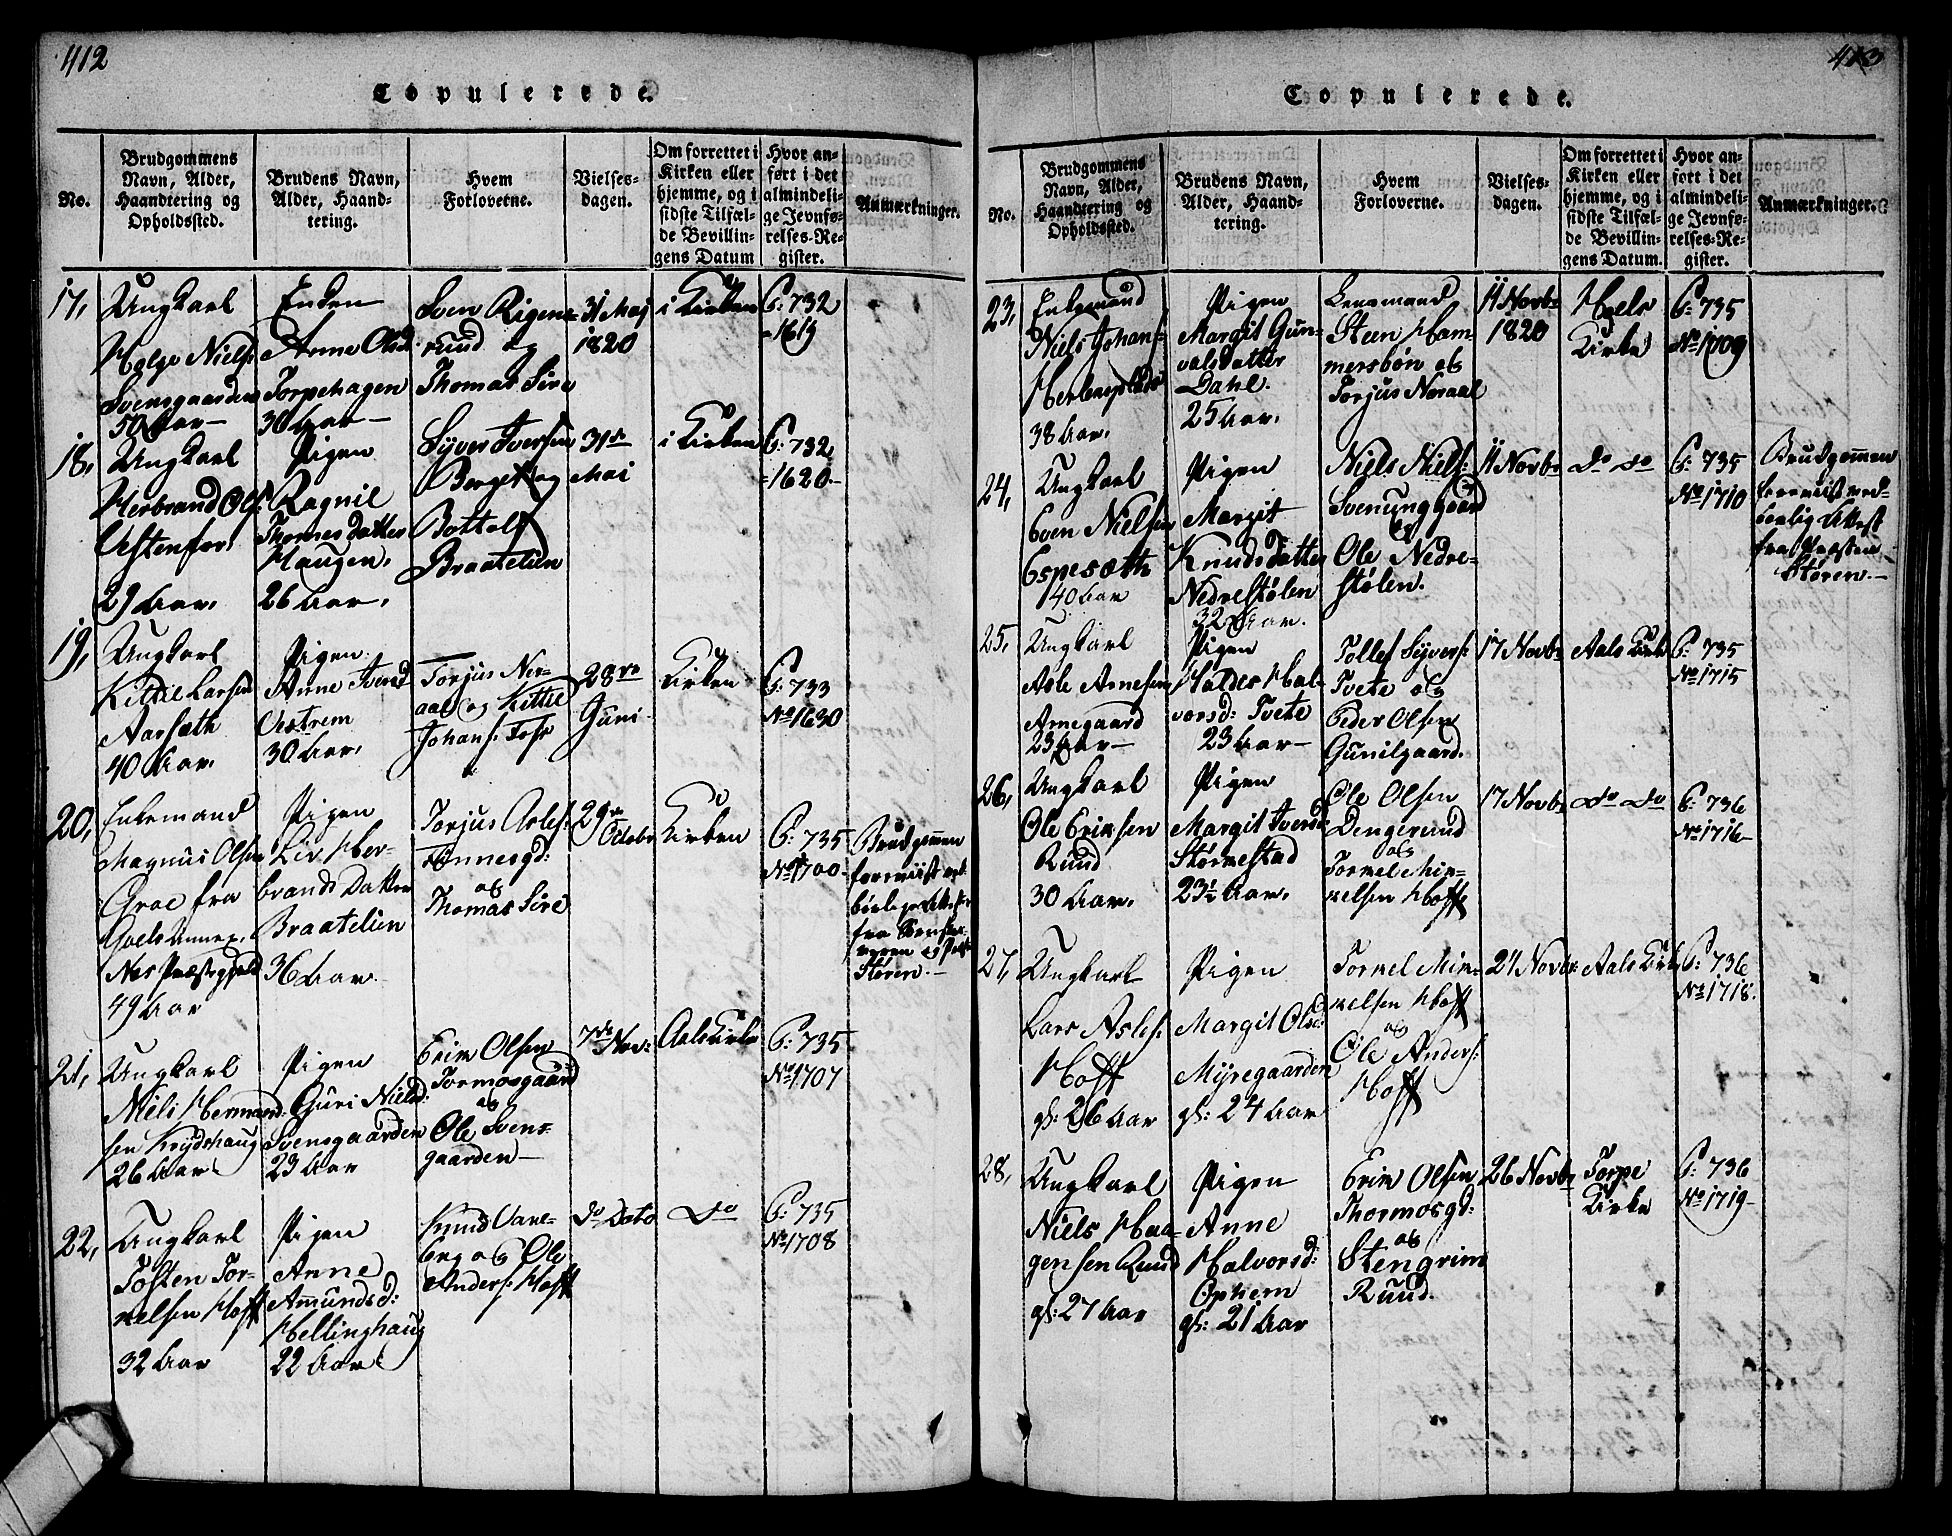 412
Copulerede.
No.
Brudgommens
Navn, Alder,
Haandtering og
Opholdssted.
Brudens Navn,
Alder, Haand-
tering.
Hvem
Forloverne.
Vielses-
dagen.
Om forrettet i
Kirken eller
hjemme, og i
sidste Tilfæl-
de Bevillin-
gens Datum
Hvor an-
ført i det
almindeli-
ge Jevnfø-
relses-Re-
gister.
Anmærkninger.
17,
Ungkarl
Helge Niels:
Svensgaarden
50 Aar
Enken
Anne Olsd:
Torpehagen
30 Aar
Sven Rigene-
rud og
Thomas Sire
31 Maj
1820
i Kirken
P: 732
1619
18,
Ungkarl
Herbrand Ols:
29 Aar.
Pigen
Ragnil
Thomesdatter
Haugen.
26 Aar.
Syver Iversen
Berget og
Bottolf
Braatelien
31te
Mai
i Kirken
P: 732
1620
19,
Ungkarl
Kittil Larsen
Aarsæth
40 Aar.
Pigen
Anne Iversd
Oestrem
30 Aar.
Torjus Ner-
aal og Kittil
Johans: Foss
28de
Juni
Kirken
P: 733
No 1630
20,
Enkemand
Magnus Olsen
Groe fra
Goels Annex,
Næs Præstegjeld
49 Aar
Pigen
Liv Her-
brands Datter
Braatelien
36 Aar
Torjus Asles:
Tinnesgd:
og
Thomas Sire
29de
Octobr
Kirken
P: 735
No 1700
Brudgommen
foreviist
fra
Støren.
21,
Ungkarl
Niels Hermand-
sen Krydshaug
26 Aar
Pigen
Guri Nielsd:
Svensgaarden
23 Aar
Erik Olsen
Tormosgaard
og
Ole Svens-
gaarden
7de Nov:
Aals Kirke
P: 735
No 1707
22,
Ungkarl
Tosten Tor-
kelsen Hoff
32 Aar
Pigen
Anne
Amundsd:
Hellinghaug
22 Aar
Knud Vare-
berg og Ole
Anders: Hoff
do Dato
do
P: 735
No 1708
413
Copulerede.
No.
Brudgommens
Navn, Alder,
Haandtering og
Opholdssted.
Brudens Navn,
Alder, Haand-
tering.
Hvem
Forloverne.
Vielses-
dagen.
Om forrettet i
Kirken eller
hjemme, og i
sidste Tilfæl-
de Bevillin-
gens Datum.
Hvor an-
ført i det
almindeli-
ge Jevnfø-
relses-Re-
gister.
Anmærkninger.
23,
Enkemand
Niels Johans:
38 Aar.
Pigen
Margit Gun-
valsdatter
Dahl.
25 Aar.
Lensmand
Steen Ham-
mersbøn og
Torjus Noraal
11 Novbr
1820
Hols
Kirke
P: 735
No 1709
24,
Ungkarl
Even Nielsen
Espesæth
40 Aar
Pigen
Margit
Knudsdatter
Nedrestølen
32 Aar.
Niels Niels:
Svenunggaard
og
Ole Nedre-
stølen.
11 Novbr
do do
P: 735
No 1710
Brudgommen
foreviist ved-
børlig Attest
fra Præsten
Støren.
25,
Ungkarl
Asle Arnesen
Arnegaard
23 Aar
Pigen
Haldis Hal-
vorsd: Tvete
23 Aar
Tollef Syvers:
Tvete og
Peder Olsen
Gunilgaard.
17 Novbr
Aals Kirke
P: 735
No 1715
26,
Ungkarl
Ole Eriksen
Ruud
30 Aar.
Pigen
Margit Iversd:
Størnestad
23½ Aar.
Ole Olsen
Dengerud
og
Torkel Mik-
kelsen Hoff
17 Novbr
do do
P: 736
No 1716
27,
Ungkarl
Lars Asles:
Hoff
gl: 26 Aar
Pigen
Margit Olsd:
Myregaarden
gl: 24 Aar
Torkel Mik-
kelsen Hoff
og
Ole Anders:
Hoff
24 Novbr
Aals Kirke
P: 736
No 1718.
28,
Ungkarl
Niels Haa-
gensen Ruud
gl: 27 Aar
Pigen
Anne
Halvorsd:
Opheim
gl: 21 Aar
Erik Olsen
Thormosgd:
og
Stengrim
Ruud.
26 Novbr
Torpe
Kirke
P: 736
No 1719